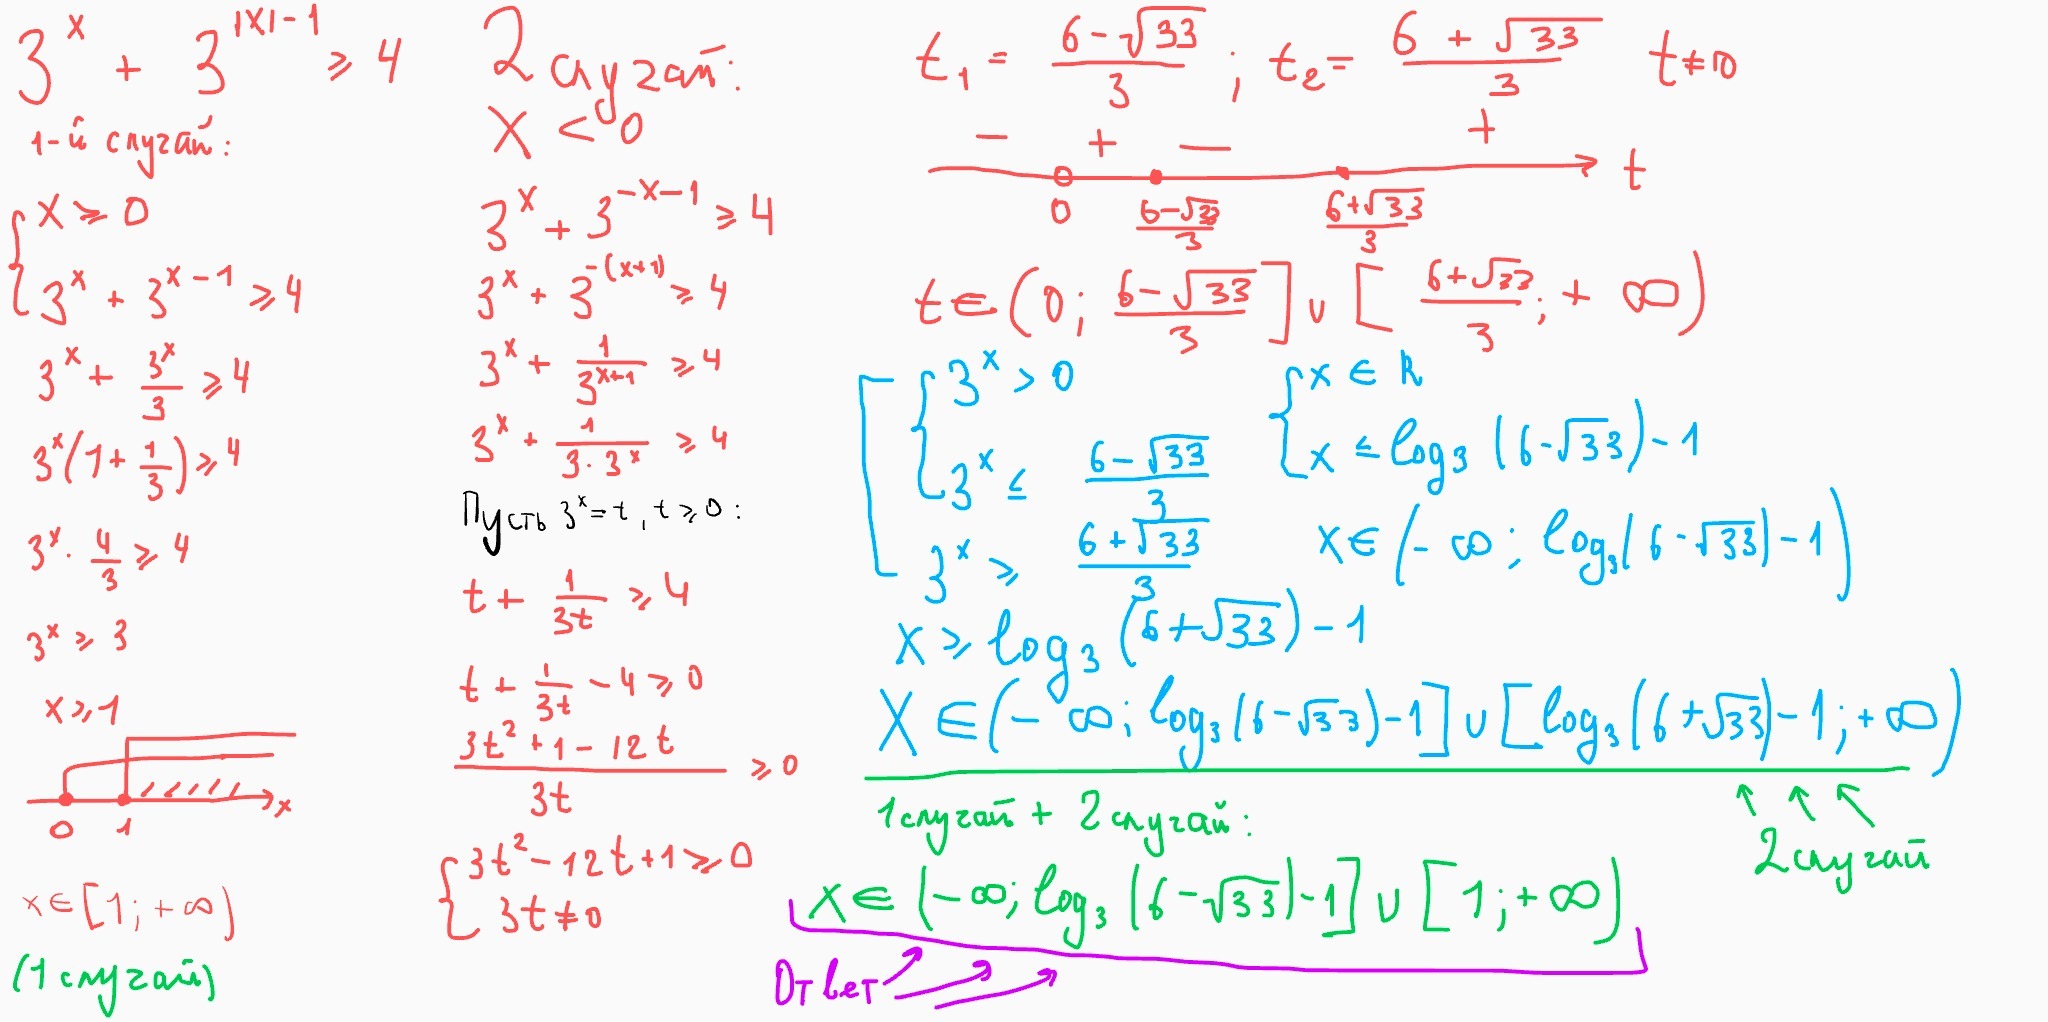 3^x + 3^{|x|-1} ⩾ 4
1-й случай:
{ x ⩾ 0
3^x + 3^{x-1} ⩾ 4
3^x + 3^x/3 ⩾ 4
3^x(1 + 1/3) ⩾ 4
3^x · 4/3 ⩾ 4
3^x ⩾ 3
x ⩾ 1
0 1 x
x ∈ [1; +∞)
(1 случай)
2 случай:
x < 0
3^x + 3^{-x-1} ⩾ 4
3^x + 3^{-(x+1)} ⩾ 4
3^x + 1/3^{x+1} ⩾ 4
3^x + 1/(3·3^x) ⩾ 4
Пусть 3^x = t, t ⩾ 0:
t + 1/(3t) ⩾ 4
t + 1/(3t) - 4 ⩾ 0
(3t² + 1 - 12t)/(3t) ⩾ 0
{ 3t² - 12t + 1 ⩾ 0
3t ≠ 0
t₁ = (6-√33)/3 ; t₂ = (6+√33)/3 t ≠ 0
- + - +
0 (6-√33)/3 (6+√33)/3 t
t ∈ (0; (6-√33)/3] ∪ [(6+√33)/3; +∞)
[ { 3^x > 0
3^x ≤ (6-√33)/3
3^x ⩾ (6+√33)/3
{ x ∈ R
x ≤ log₃(6-√33)-1
x ∈ (-∞; log₃(6-√33)-1)
x ⩾ log₃(6+√33)-1
X ∈ (-∞; log₃(6-√33)-1] ∪ [log₃(6+√33)-1; +∞)
2 случай
1 случай + 2 случай:
x ∈ (-∞; log₃(6-√33)-1] ∪ [1; +∞)
Ответ